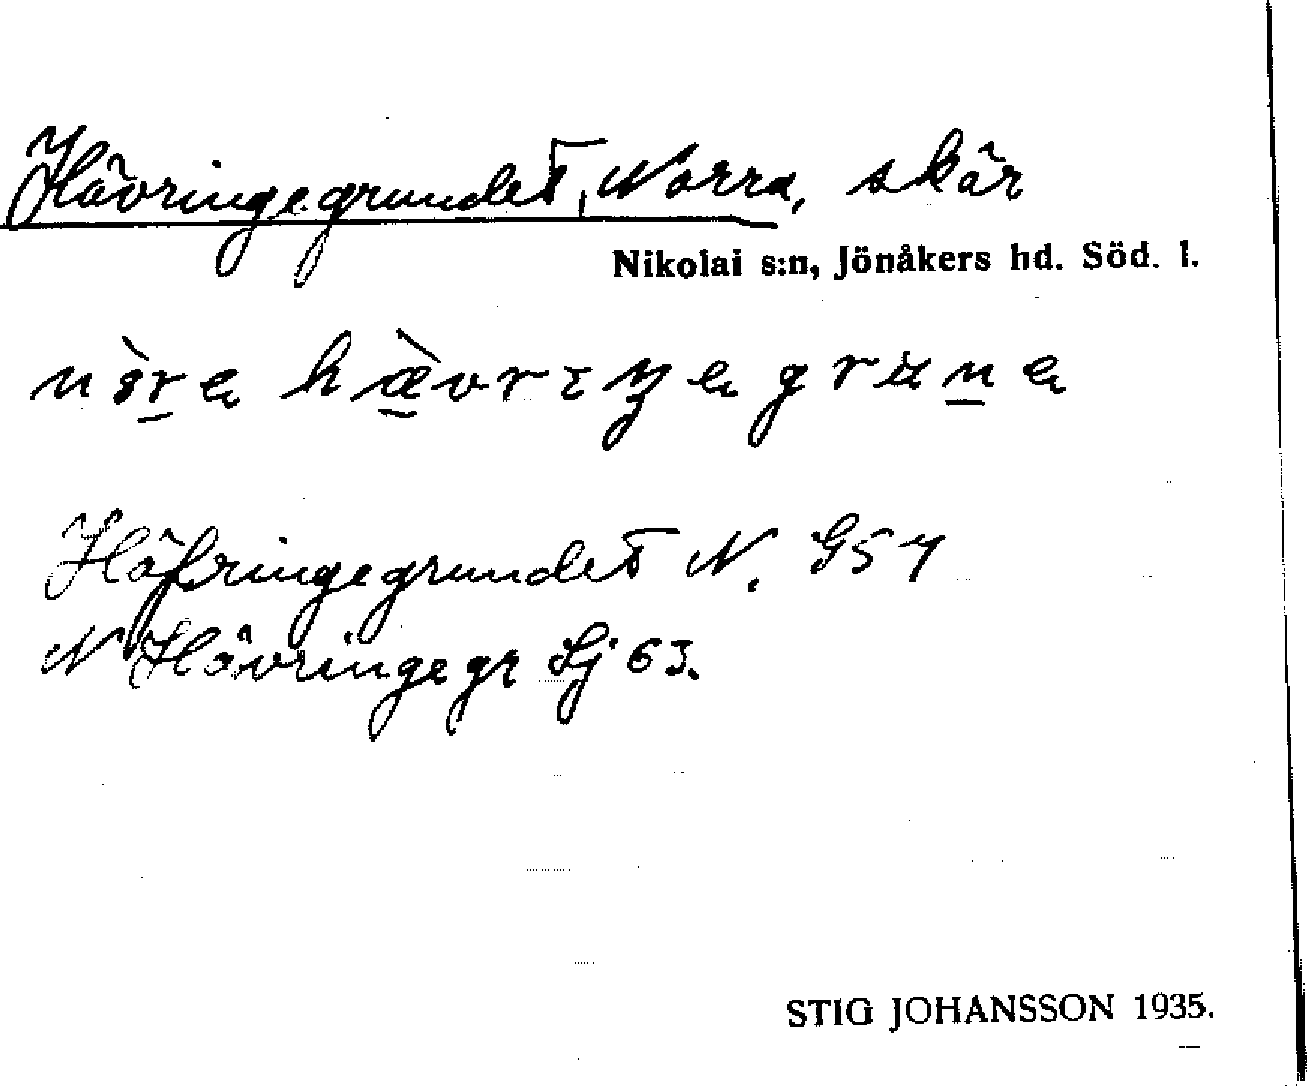 Hävringegrundet, Norra, skär
Nikolai s:n, Jönåkers hd. Söd. l.
Häfringegrundet N. G57
N Hävringegr Sj 63.
STIG JOHANSSON 1935.